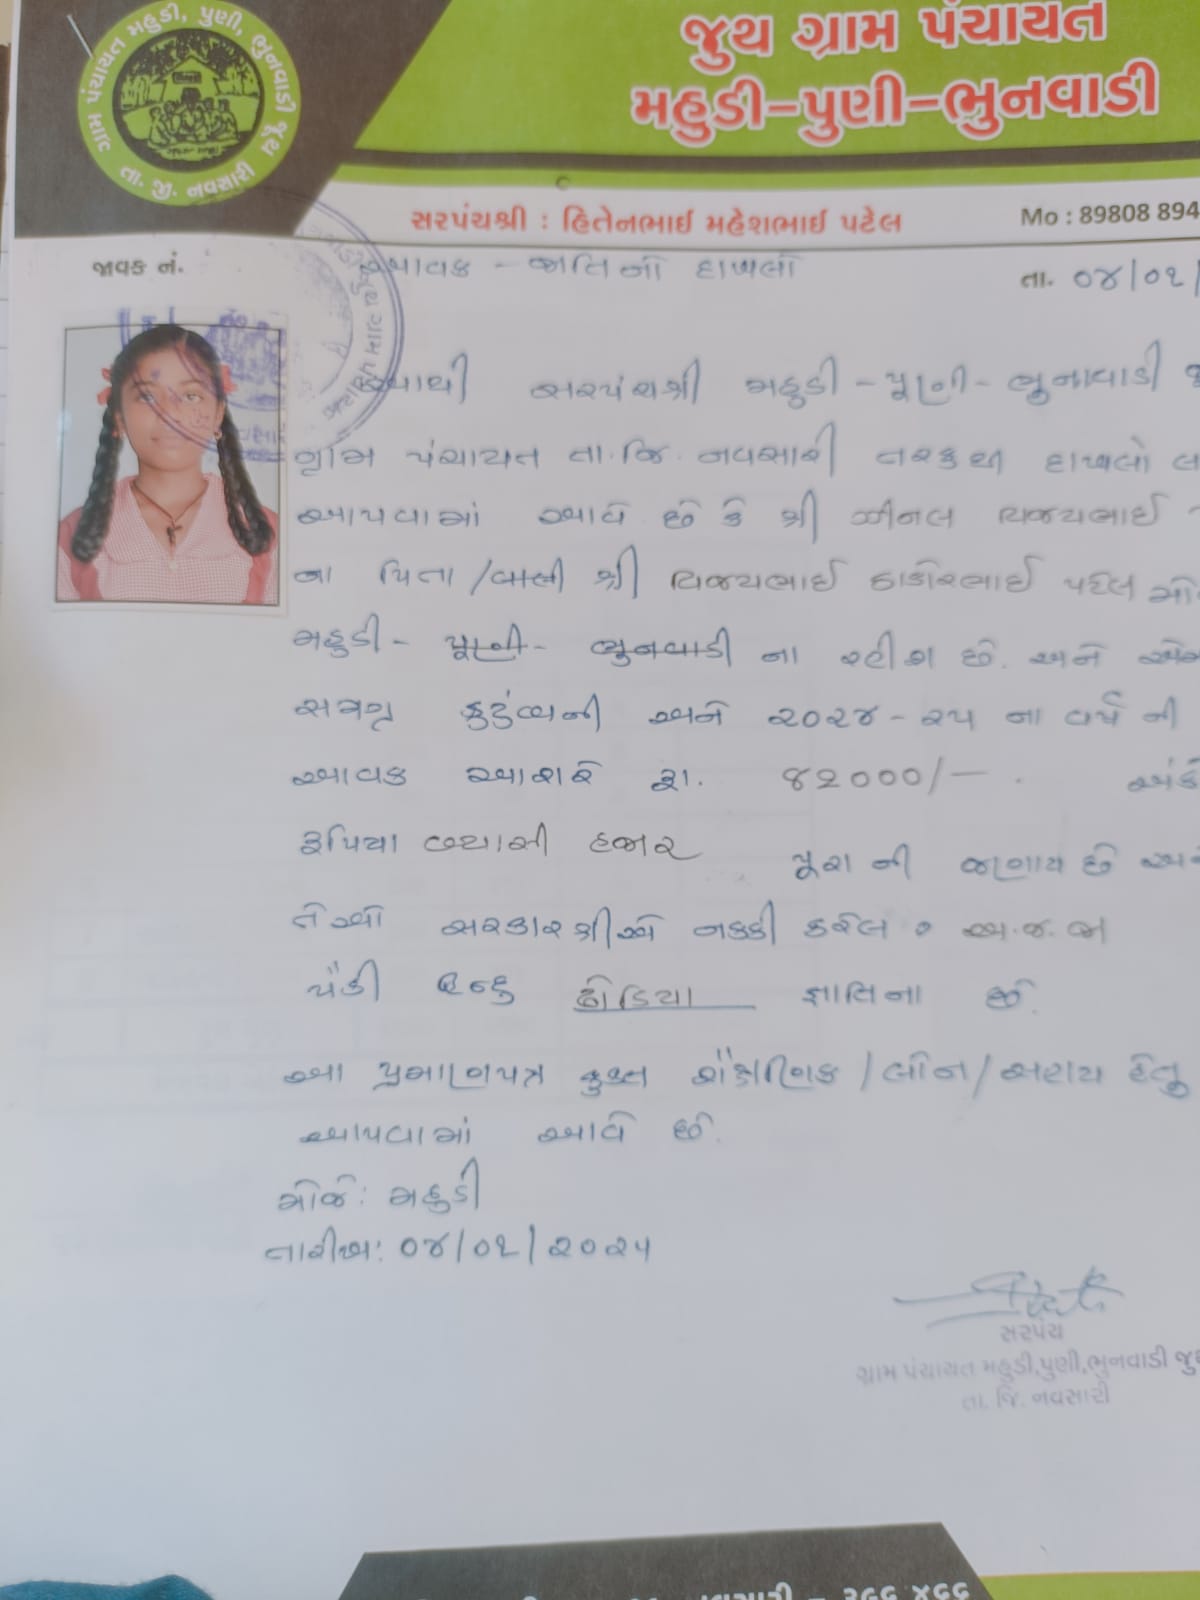 ગ્રામ પંચાયત મહુડી, પુણી, ભુનવાડી જૂથ
તા. જી. નવસારી
જુથ ગ્રામ પંચાયત
મહુડી-પુણી-ભુનવાડી
સરપંચશ્રી : હિતેનભાઈ મહેશભાઈ પટેલ
Mo : 89808 894
જાવક નં.
આવક - જાતિનો દાખલો
તા. ૦૪/૦૧/
આથી સરપંચશ્રી મહુડી - પૂણી - ભુનાવાડી
ગ્રામ પંચાયત તા.જિ. નવસારી તરફથી દાખલો
આપવામાં આવે છે કે શ્રી ઝીનલ વિજયભાઈ
ના પિતા /વાલી શ્રી વિજયભાઈ ઠાકોરભાઈ પટેલ
મહુડી - પૂણી - ભુનવાડી ના રહીશ છે. અને
સમગ્ર કુટુંબની અને ૨૦૨૪ - ૨૫ ના વર્ષ ની
આવક આશરે રૂા. ૮૨૦૦૦/- .
રૂપિયા બ્યાસી હજાર પૂરા ની જણાય છે
તેઓ સરકારશ્રીએ નક્કી કરેલ અ.જ.જા
પૈકી હિન્દુ ઢોડિયા જ્ઞાતિના છે.
આ પ્રમાણપત્ર ફક્ત શૈક્ષણિક /લોન/સહાય હેતુ
આપવામાં આવે છે.
મોજે: મહુડી
તારીખ: ૦૪/૦૧/૨૦૨૫
સરપંચ
ગ્રામ પંચાયત મહુડી,પુણી,ભુનવાડી જુ
તા. જિ. નવસારી
નવસારી - ૩૯૬ ૪૬૬